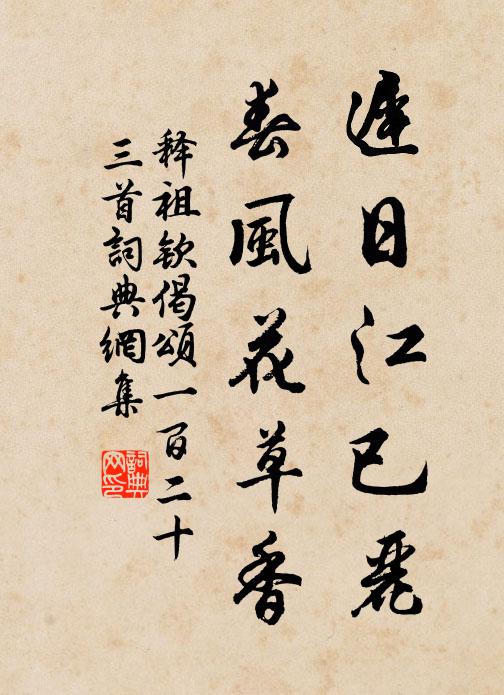 遲日江已麗
春風花草香
釋祖欽偈頌一百二十
三首詞典網集
詞典
网印